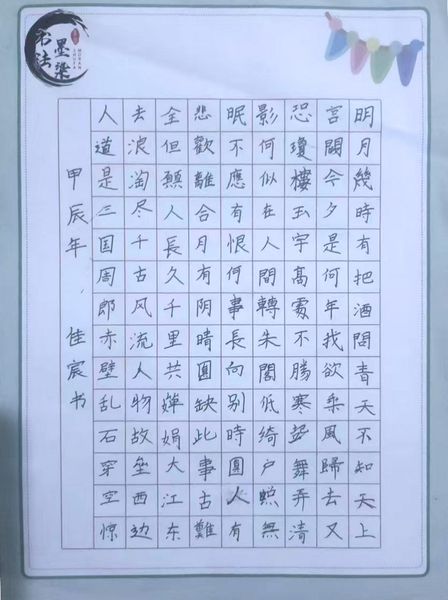 墨染
书法
MORAN
SHUFA
明月幾時有把酒問青天不知天上
宮闕今夕是何年我欲乘風歸去又
恐瓊樓玉宇高處不勝寒起舞弄清
影何似在人間轉朱閣低綺户照無
眠不應有恨何事長向别時圓人有
悲歡離合月有阴晴圓缺此事古難
全但願人長久千里共嬋娟大江东
去浪淘尽千古风流人物故垒西边
人道是三国周郎赤壁乱石穿空惊
甲辰年，佳宸书